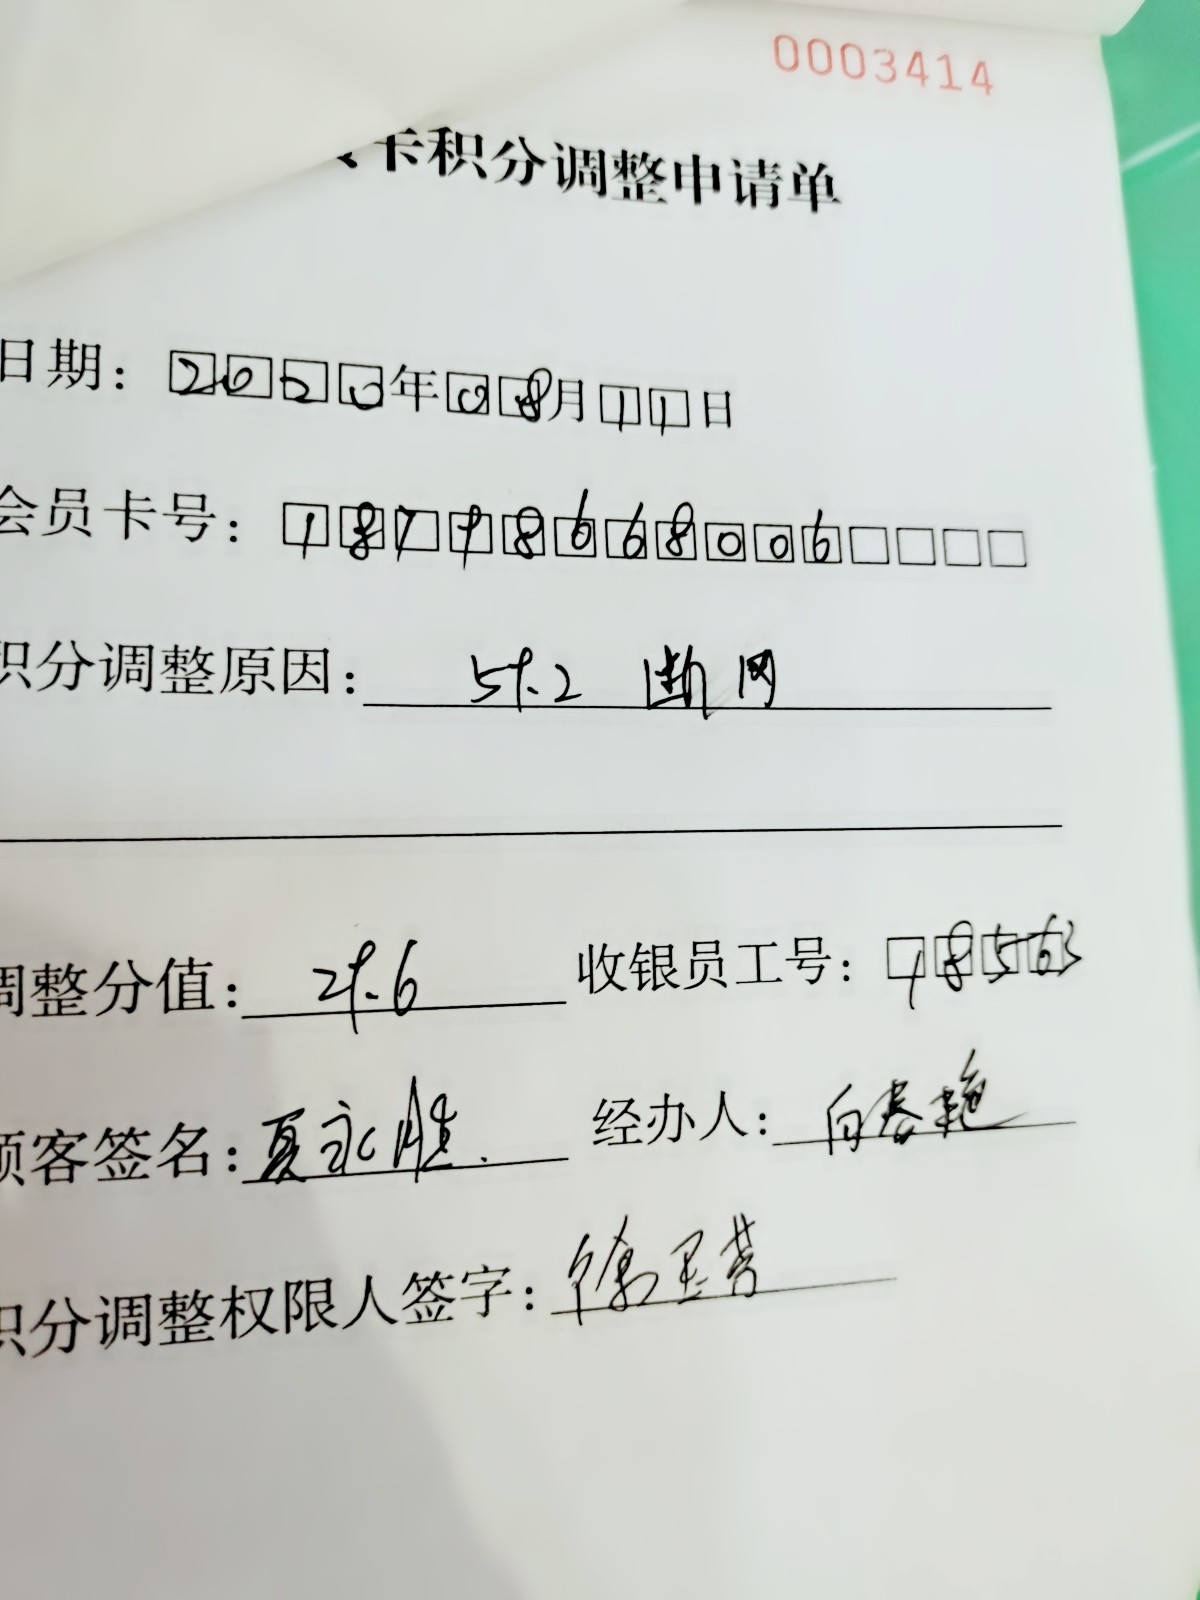 0003414
卡积分调整申请单
日期：2020年08月11日
会员卡号：18798668006
积分调整原因：59.2 断网
调整分值：29.6 收银员工号：18563
顾客签名：夏永胜 经办人：白春艳
积分调整权限人签字：徐